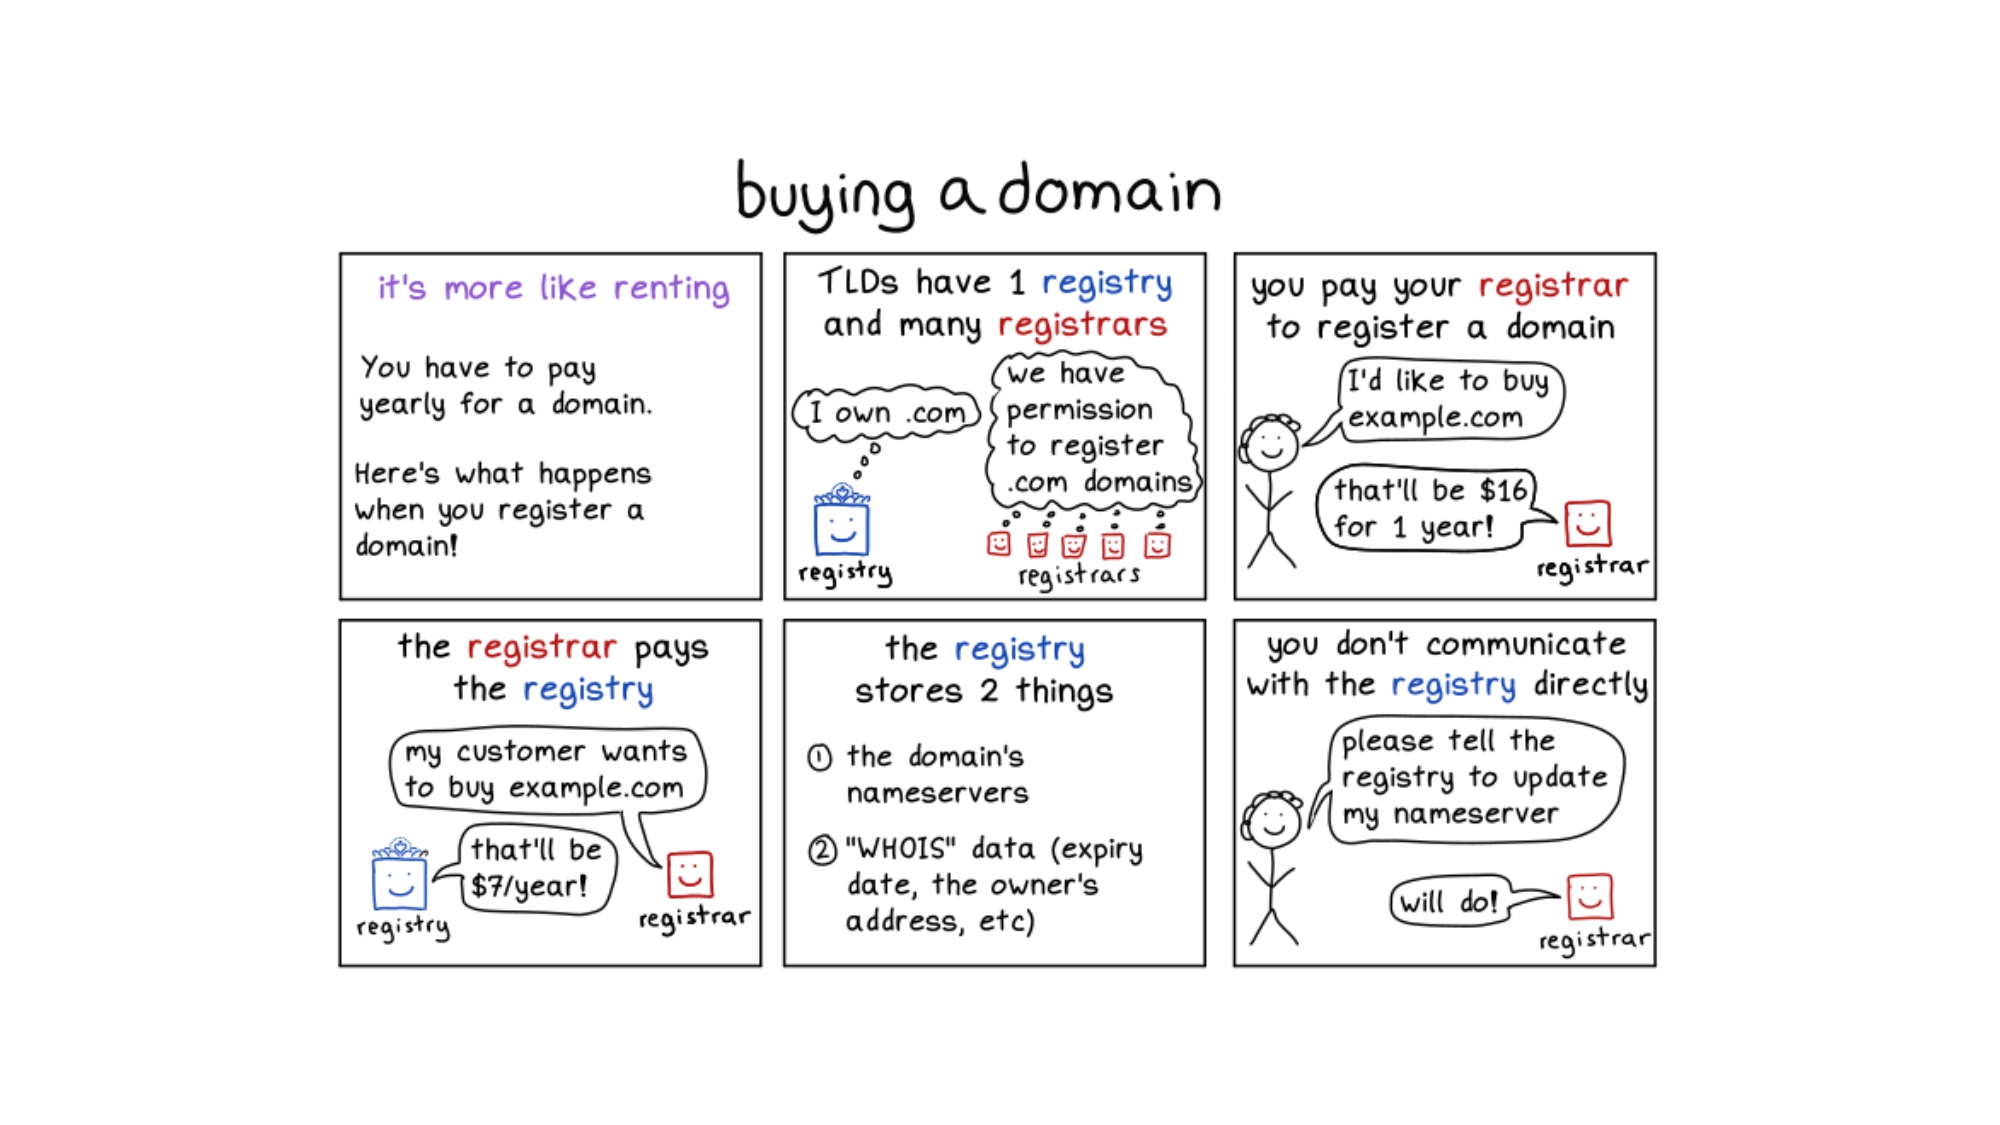 buying a domain
it's more like renting
You have to pay
yearly for a domain.
Here's what happens
when you register a
domain!
TLDs have 1 registry
and many registrars
I own .com
registry
we have
permission
to register
.com domains
registrars
you pay your registrar
to register a domain
I'd like to buy
example.com
that'll be $16
for 1 year!
registrar
the registrar pays
the registry
my customer wants
to buy example.com
that'll be
$7/year!
registry
registrar
the registry
stores 2 things
① the domain's
nameservers
② "WHOIS" data (expiry
date, the owner's
address, etc)
you don't communicate
with the registry directly
please tell the
registry to update
my nameserver
will do!
registrar